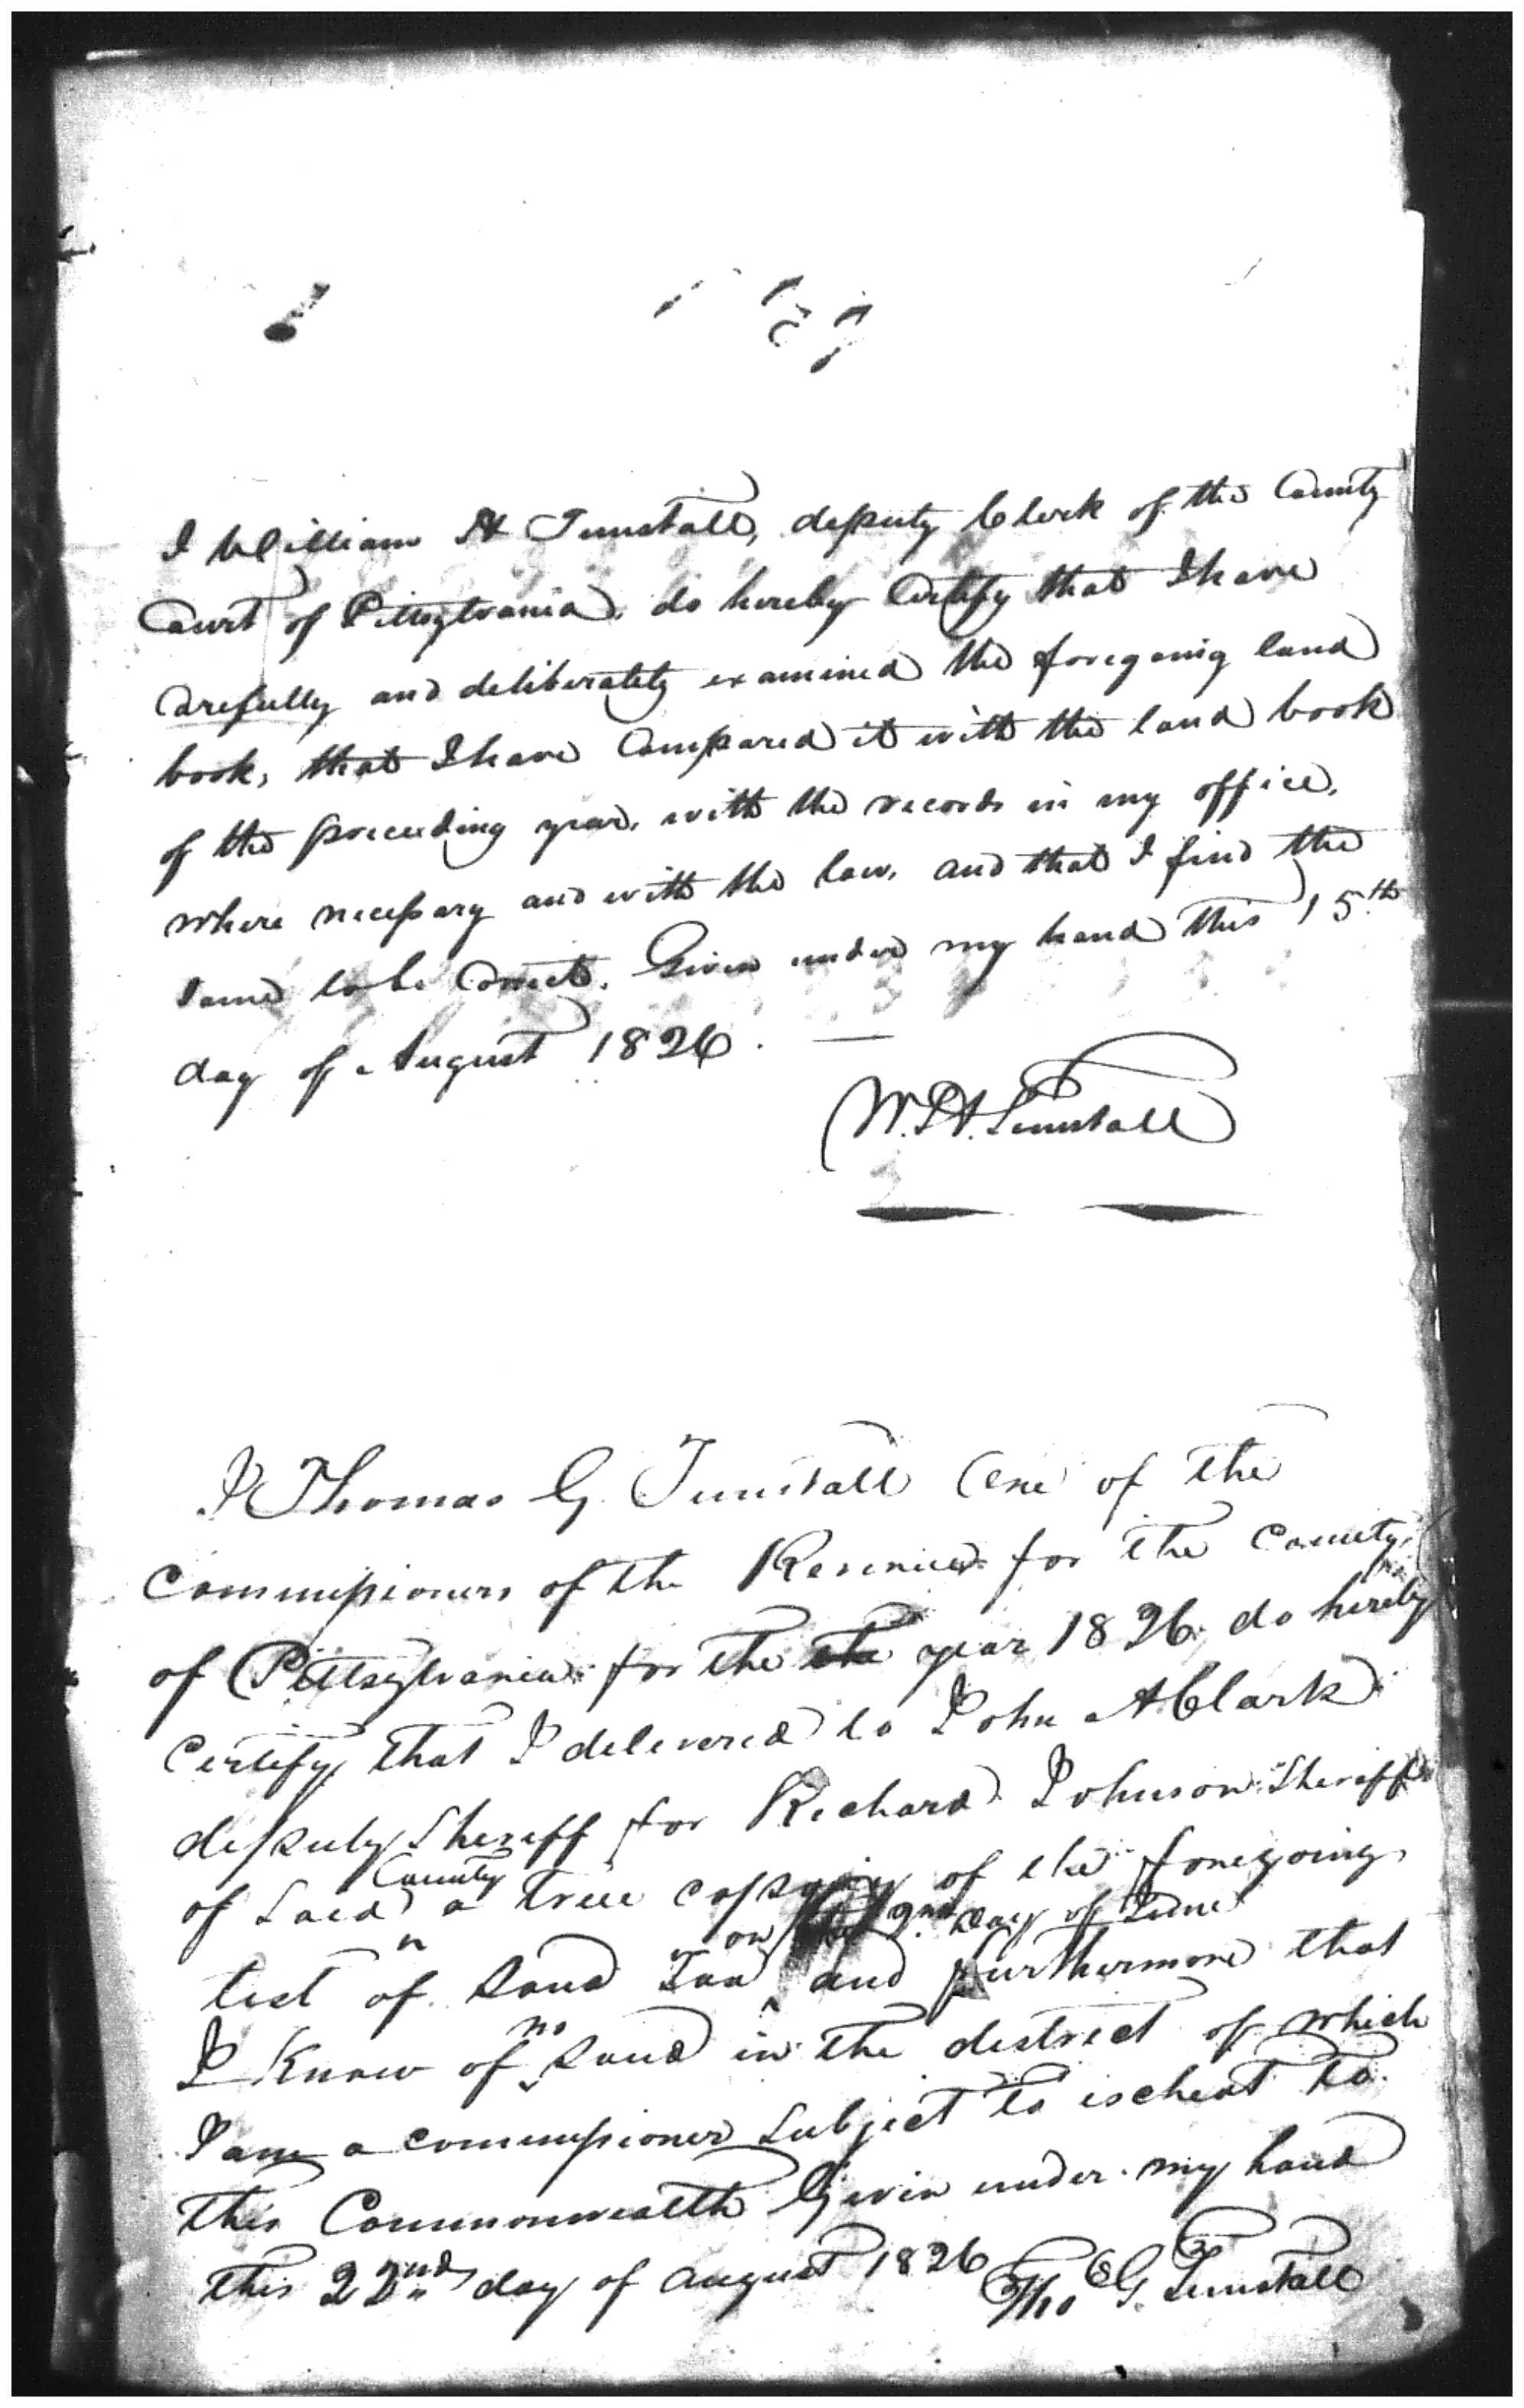 I William H Tunstall, deputy Clerk of the County
Court of Pittsylvania, do hereby Certify that I have
Carefully and deliberately examined the foregoing land
book, that I have Compared it with the land book
of the preceeding year, with the records in my office,
where necessary and with the law, and that I find the
same to be Correct. Given under my hand this 15th
day of August 1826. —
W. H. Tunstall
I Thomas G. Tunstall One of the
Commissioners of the Revenue for the County
of Pittsylvania for the the year 1826 do hereby
Certify that I delivered to John A Clark
deputy Sheriff for Richard Johnson Sheriff
of Said County a true copy of the foregoing
on the 2nd day of June
list of Land Tax and furthermore that
I Know of no Land in the district of which
I am a commissioner Subject to escheat to
this Commonwealth Given under my hand
this 22nd day of August 1826 Tho G. Tunstall